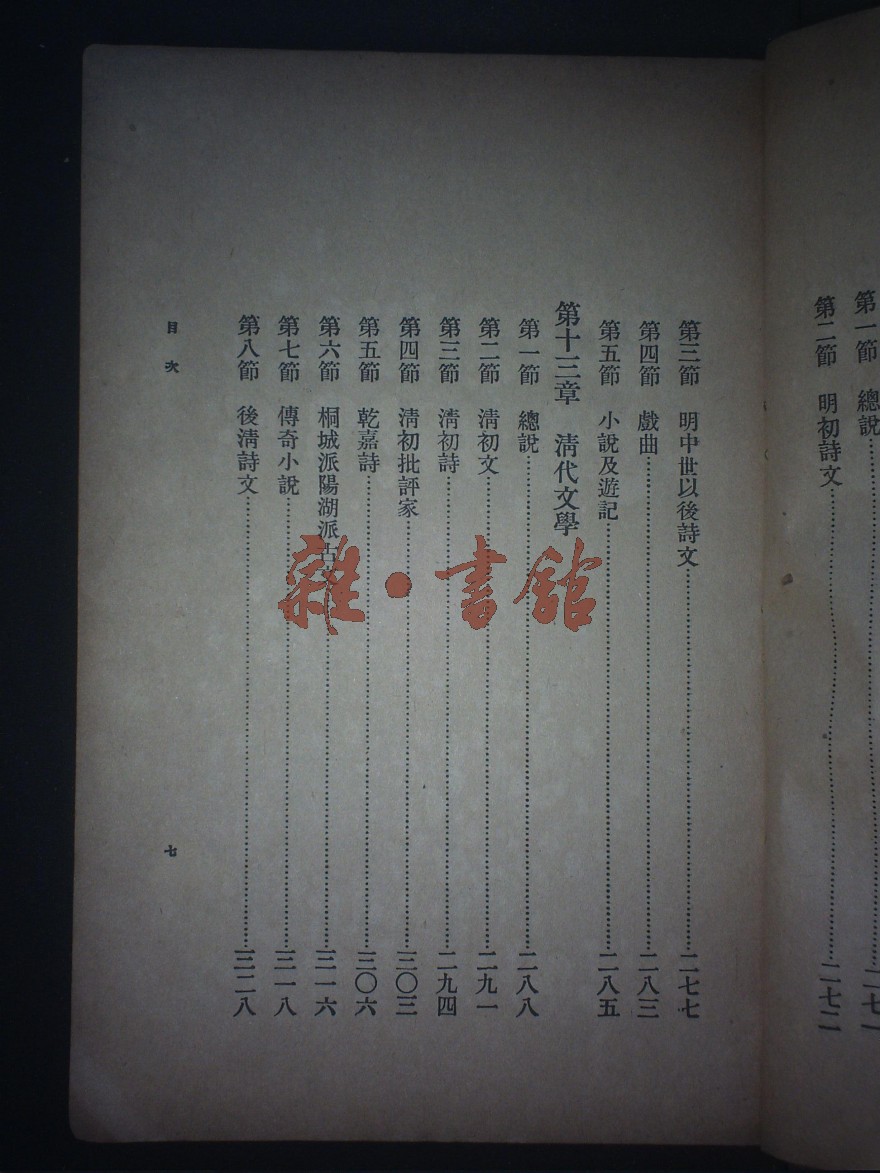 第一節　總說……二七一
第二節　明初詩文……二七二
第三節　明中世以後詩文……二七七
第四節　戲曲……二八三
第五節　小說及遊記……二八五
第十三章　清代文學
第一節　總說……二八八
第二節　清初文……二九一
第三節　清初詩……二九四
第四節　清初批評家……三〇三
第五節　乾嘉詩……三〇六
第六節　桐城派陽湖派古文……三一六
第七節　傳奇小說……三一八
第八節　後清詩文……三二八
目次
七
雜·書館